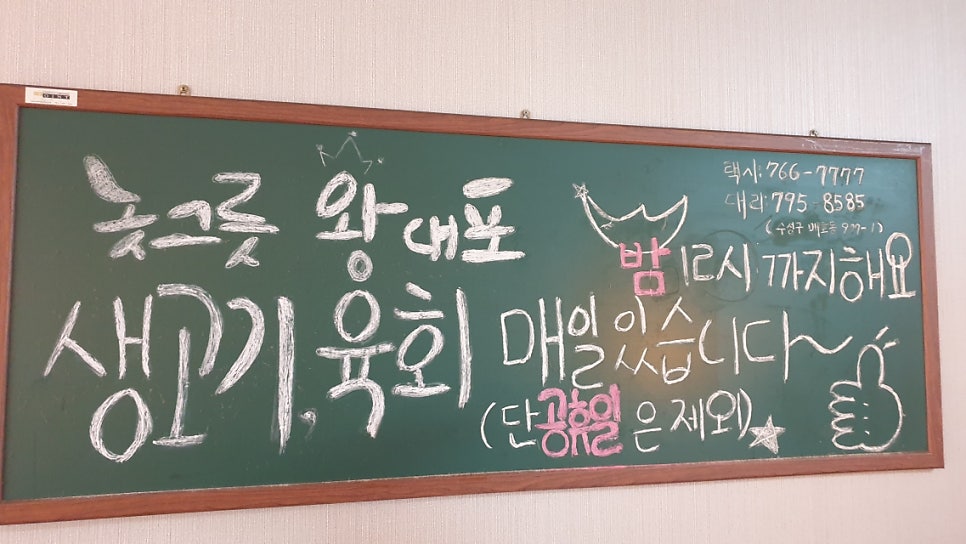 놋그릇 왕대포
택시: 766-7777
대리: 795-8585
(수성구 매호동 977-1)
밤 12시 까지해요
생고기, 육회 매일있습니다~
(단 공휴일 은 제외)